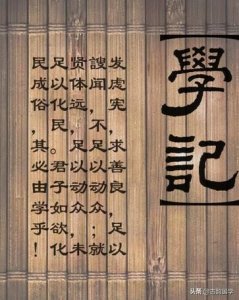 【學記】
发虑宪，求善良，足以
謏闻，不足以动众；就
贤体远，足以动众，未
足以化民。君子如欲化
民成俗，其必由学乎！
头条